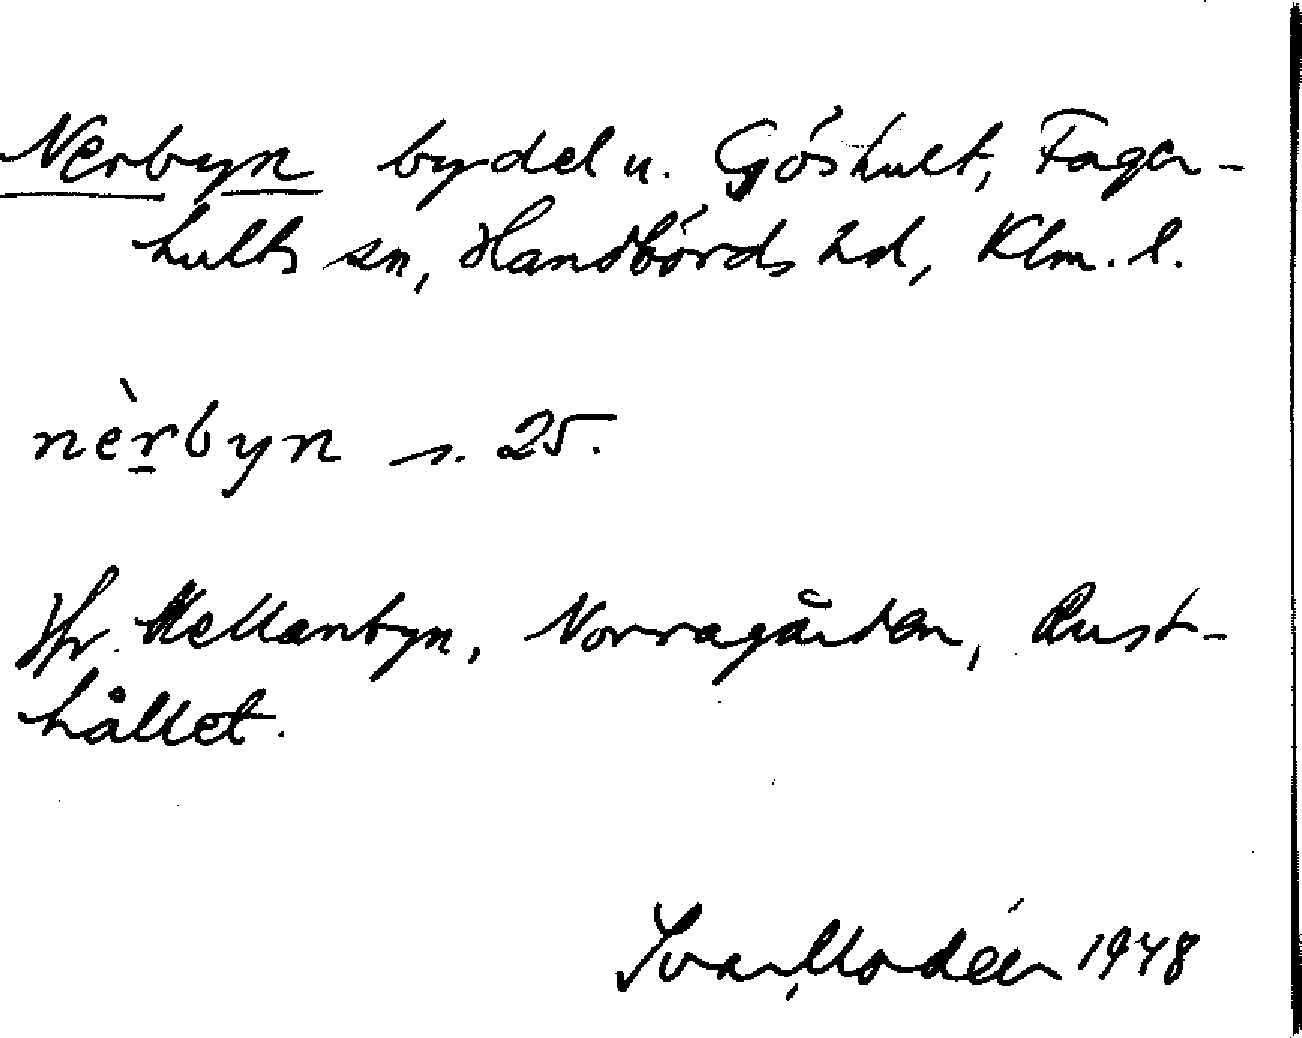 Nerbyn bydel u. Gjöshult, Fager-
hults sn, Handbörds hd, Klm. l.
nèrbyn s. 25.
Jfr Mellanbyn, Norragården, Rust-
hållet.
Ivar Modéer 1948